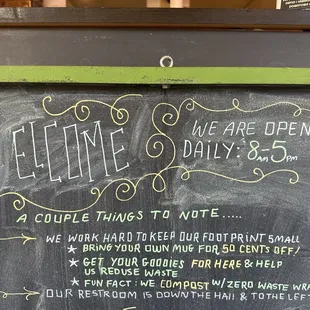 ELCOME
WE ARE OPEN
DAILY: 8AM 5PM
A COUPLE THINGS TO NOTE.....
WE WORK HARD TO KEEP OUR FOOTPRINT SMALL
★ BRING YOUR OWN MUG FOR 50 CENTS OFF!
★ GET YOUR GOODIES FOR HERE & HELP
US REDUCE WASTE
★ FUN FACT: WE COMPOST W/ ZERO WASTE WR
OUR RESTROOM IS DOWN THE HALL & TO THE LEFT